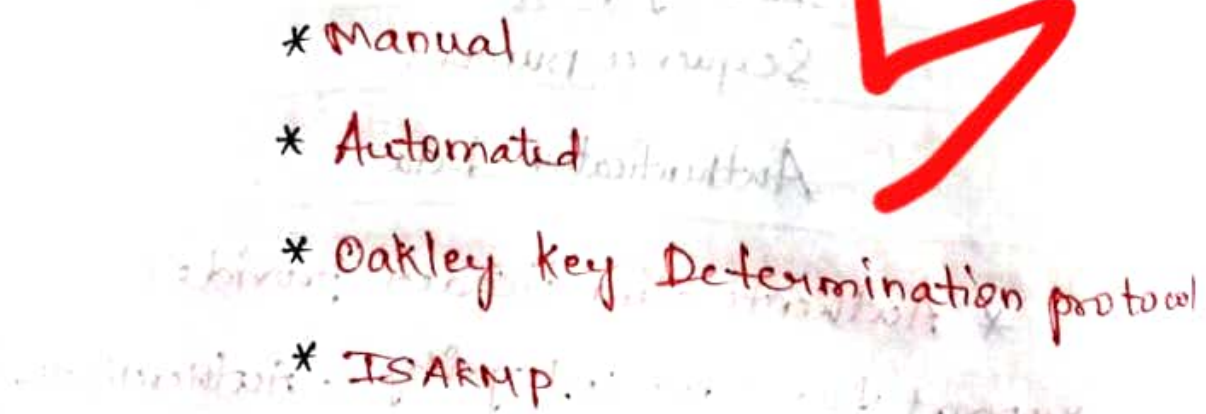 * Manual
* Automated
* Oakley key Determination protocol
* ISAKMP.